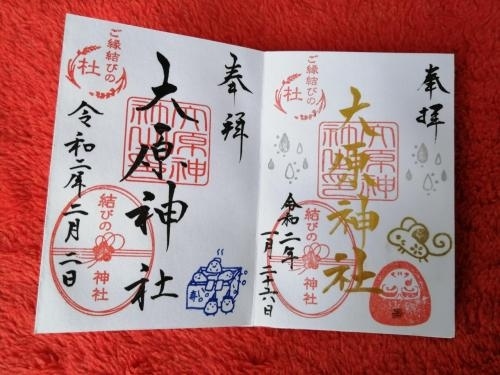 奉拜
大原神社
ご縁結びの
杜
令和二年二月二日
結びの
神社
奉拝
大原神社
ご縁結びの
杜
令和二年
一月二十六日
結びの
神社